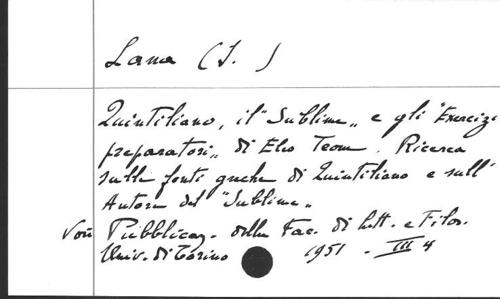 Lana (I.)
Quintiliano, il "Sublime" e gli "Esercizi
preparatori" di Elio Teone. Ricerca
sulle fonti greche di Quintiliano e sull'
Autore del "Sublime"
Pubblicaz. della Fac. di lett. e Filos.
Univ. di Torino 1951 - III 4